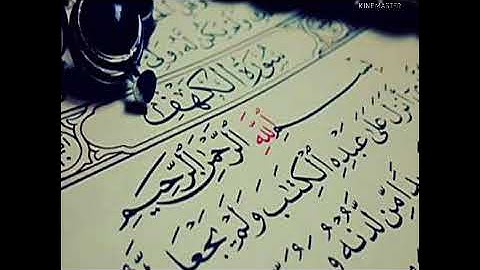 KINEMASTER
يَكُن لَّهُ وَلِىٌّ
سُورَةُ الْكَهْفِ
بِسْمِ اللَّهِ الرَّحْمَٰنِ الرَّحِيمِ
أَنزَلَ عَلَىٰ عَبْدِهِ الْكِتَٰبَ وَلَمْ يَجْعَل
مِّن لَّدُنْهُ وَ